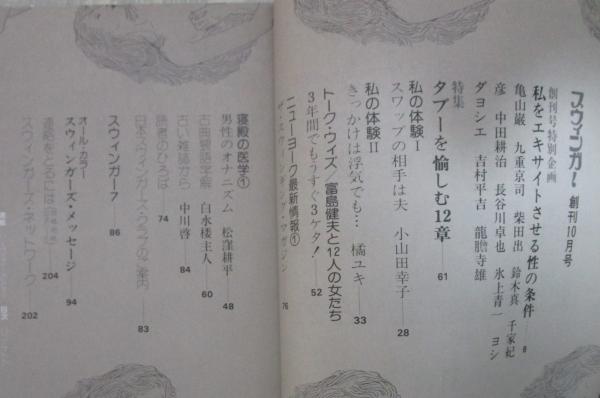 スウィンガー 創刊10月号
創刊号特別企画
私をエキサイトさせる性の条件 8
亀山巌 九重京司 柴田出 鈴木真 千家妃
彦 中田耕治 長谷川卓也 氷上青一 ヨシ
ダヨシエ 吉村平吉 龍膽寺雄
特集
タブーを愉しむ12章 61
私の体験Ⅰ
スワップの相手は夫 小山田幸子 28
私の体験Ⅱ
きっかけは浮気でも… 橘ユキ 33
トーク・ウィズ/富島健夫と12人の女たち
3年間でもうすぐ3ケタ! 52
ニューヨーク最新情報①
ザ・スウィンギング・マガジン 76
寝殿の医学①
男性のオナニズム 松窪耕平 48
古典艶語字解 白水楼主人 60
古い雑誌から 中川啓 84
読者のひろば 74
日本スウィンガーズ・クラブのご案内 83
スウィンガー7 86
オール・カラー
スウィンガーズ・メッセージ 94
連絡をとるには 204
スウィンガーズ・ネットワーク 202